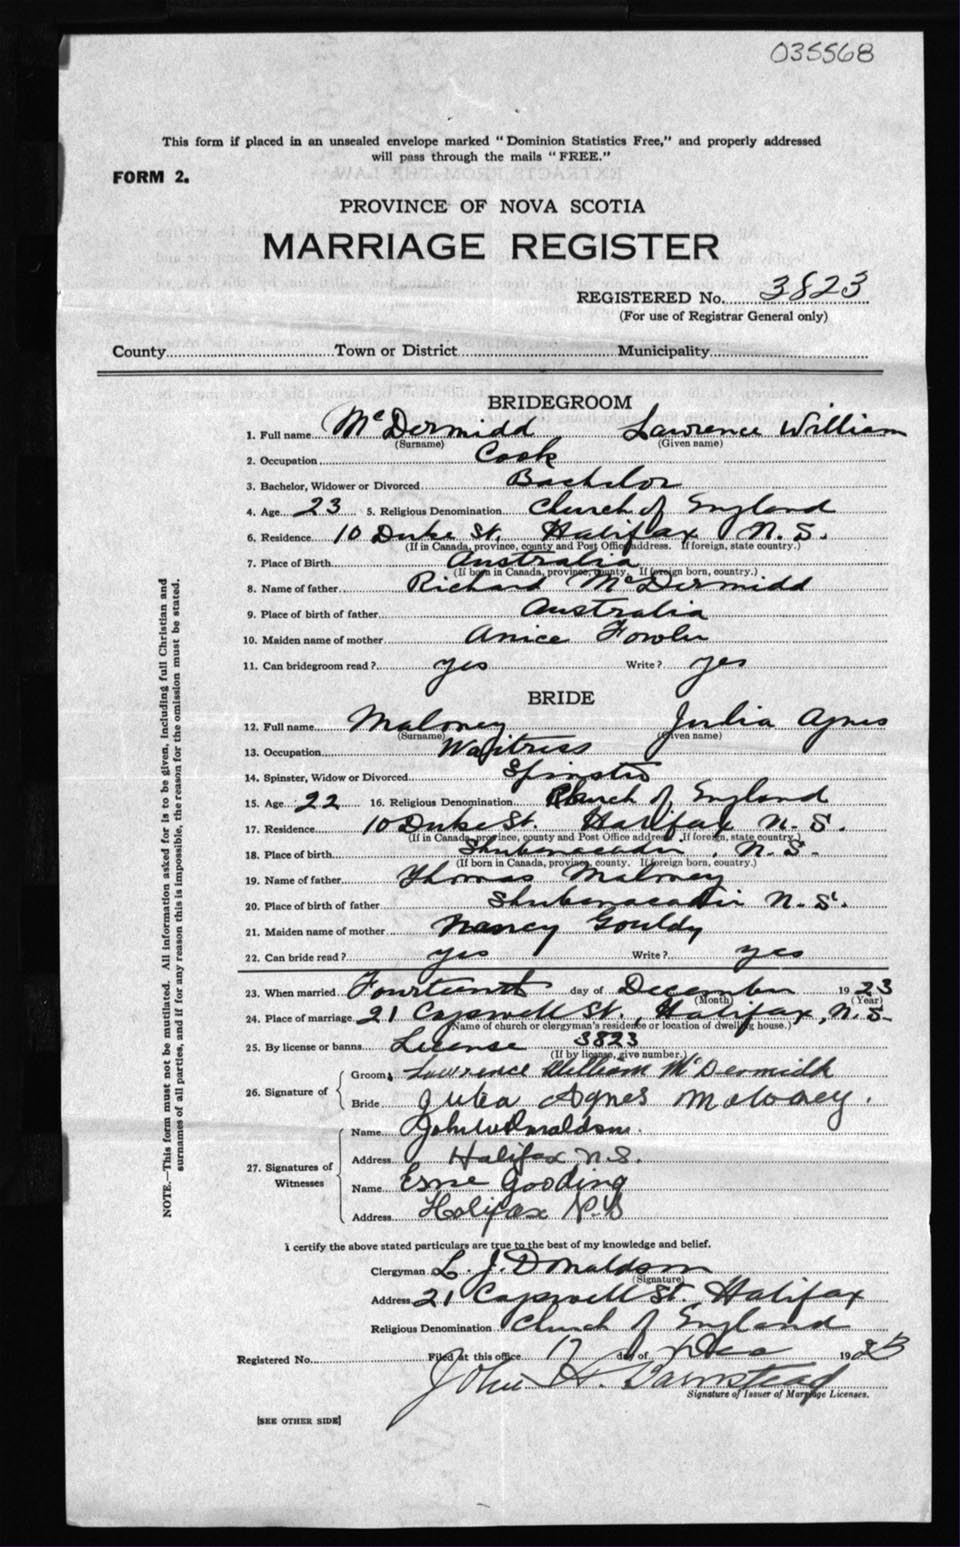 035568
This form if placed in an unsealed envelope marked "Dominion Statistics Free," and properly addressed
will pass through the mails "FREE."
FORM 2.
PROVINCE OF NOVA SCOTIA
MARRIAGE REGISTER
REGISTERED No. 3823
(For use of Registrar General only)
County Town or District Municipality
BRIDEGROOM
1. Full name McDermidd Lawrence William
(Surname) (Given name)
2. Occupation Cook
3. Bachelor, Widower or Divorced Bachelor
4. Age 23 5. Religious Denomination Church of England
6. Residence 10 Duke St. Halifax N.S.
(If in Canada, province, county and Post Office address. If foreign, state country.)
7. Place of Birth Australia
(If born in Canada, province, county. If foreign born, country.)
8. Name of father Richard McDermidd
9. Place of birth of father Australia
10. Maiden name of mother Anice Fowler
11. Can bridegroom read? yes Write? yes
BRIDE
12. Full name Maloney Julia Agnes
(Surname) (Given name)
13. Occupation Waitress
14. Spinster, Widow or Divorced Spinster
15. Age 22 16. Religious Denomination Church of England
17. Residence 10 Duke St. Halifax N.S.
(If in Canada, province, county and Post Office address. If foreign, state country.)
18. Place of birth Shubenacadie, N.S.
(If born in Canada, province, county. If foreign born, country.)
19. Name of father Thomas Maloney
20. Place of birth of father Shubenacadie N.S.
21. Maiden name of mother Nancy Gouldy
22. Can bride read? yes Write? yes
23. When married Fourteenth day of December 1923
(Month) (Year)
24. Place of marriage 21 Cogswell St., Halifax, N.S.
(Name of church or clergyman's residence or location of dwelling house.)
25. By license or banns License 3823
(If by license, give number.)
26. Signature of
Groom Lawrence William McDermidd
Bride Julia Agnes Maloney.
27. Signatures of Witnesses
Name John W Donaldson.
Address Halifax N.S.
Name Esme Gooding
Address Halifax N.S
I certify the above stated particulars are true to the best of my knowledge and belief.
Clergyman L. J. Donaldson
(Signature)
Address 21 Cogswell St. Halifax
Religious Denomination Church of England
Registered No. Filed at this office 17 day of Dec 1923
John H. Barnstead
Signature of Issuer of Marriage Licenses.
[SEE OTHER SIDE]
NOTE.—This form must not be mutilated. All information asked for is to be given, including full Christian and
surnames of all parties, and if for any reason this is impossible, the reason for the omission must be stated.